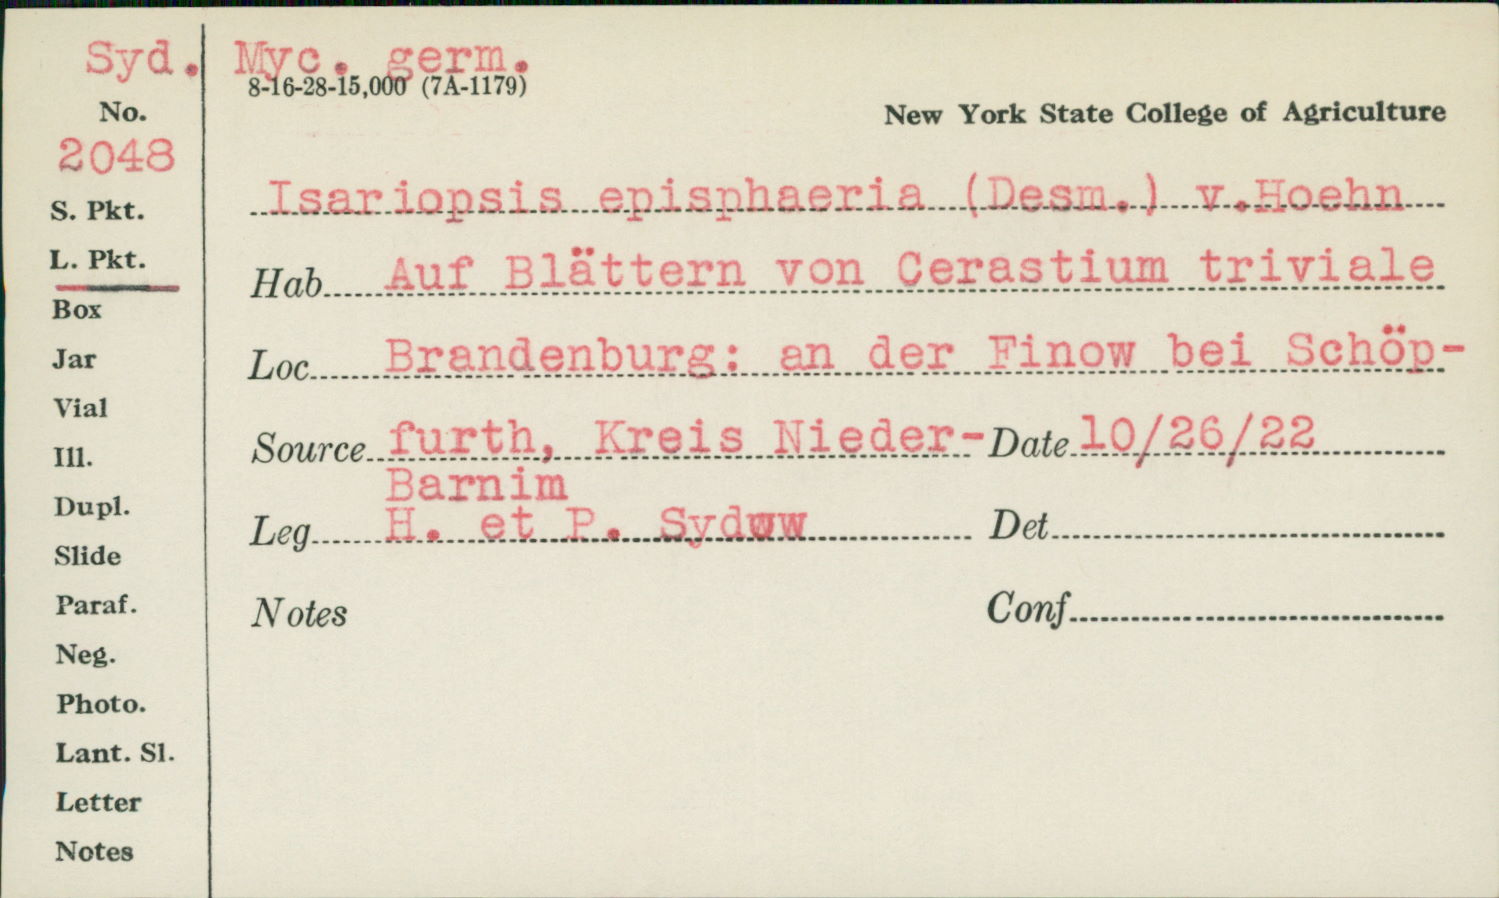 Syd. Myc. germ.
8-16-28-15,000 (7A-1179)
No.
New York State College of Agriculture
2048
S. Pkt.
Isariopsis episphaeria (Desm.) v.Hoehn
L. Pkt.
Hab Auf Blättern von Cerastium triviale
Box
Jar
Loc Brandenburg: an der Finow bei Schöp-
Vial
Ill.
Source furth, Kreis Nieder- Date 10/26/22
Barnim
Dupl.
Leg H. et P. Sydww Det
Slide
Paraf.
Notes Conf
Neg.
Photo.
Lant. Sl.
Letter
Notes